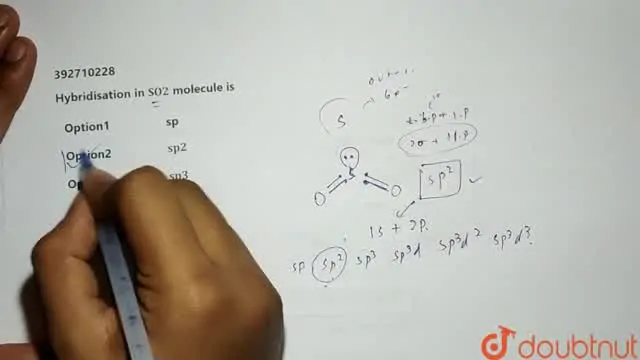 392710228
Hybridisation in SO2 molecule is
Option1 sp
Option2 sp2
sp3
6e⁻
S
2σ + 1l.p
S
O O
sp²
1s + 2p.
sp sp² sp³ sp³d sp³d² sp³d³
doubtnut